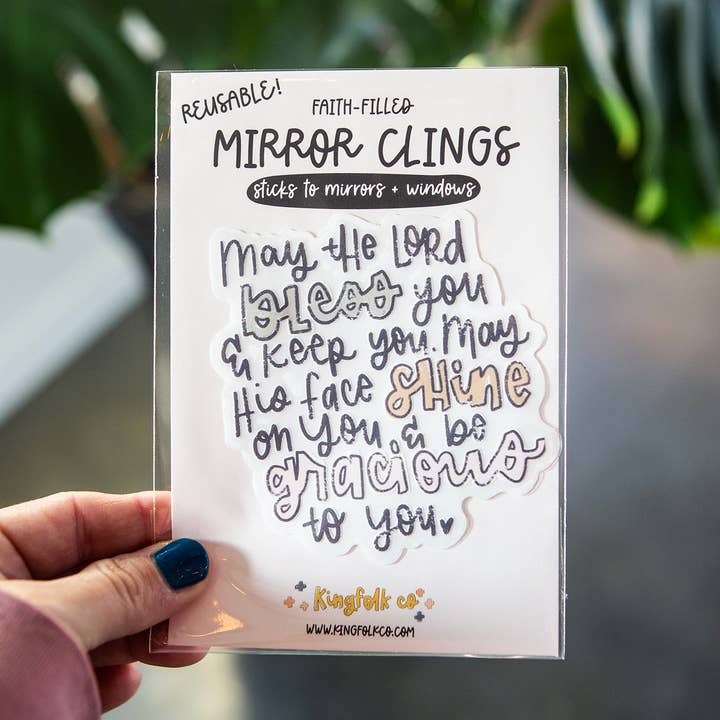 REUSABLE!
FAITH-FILLED
MIRROR CLINGS
sticks to mirrors + windows
may the LORD
bless you
& keep you. May
His face SHINE
on you & be
gracious
to you
Kingfolk co
WWW.KINGFOLKCO.COM